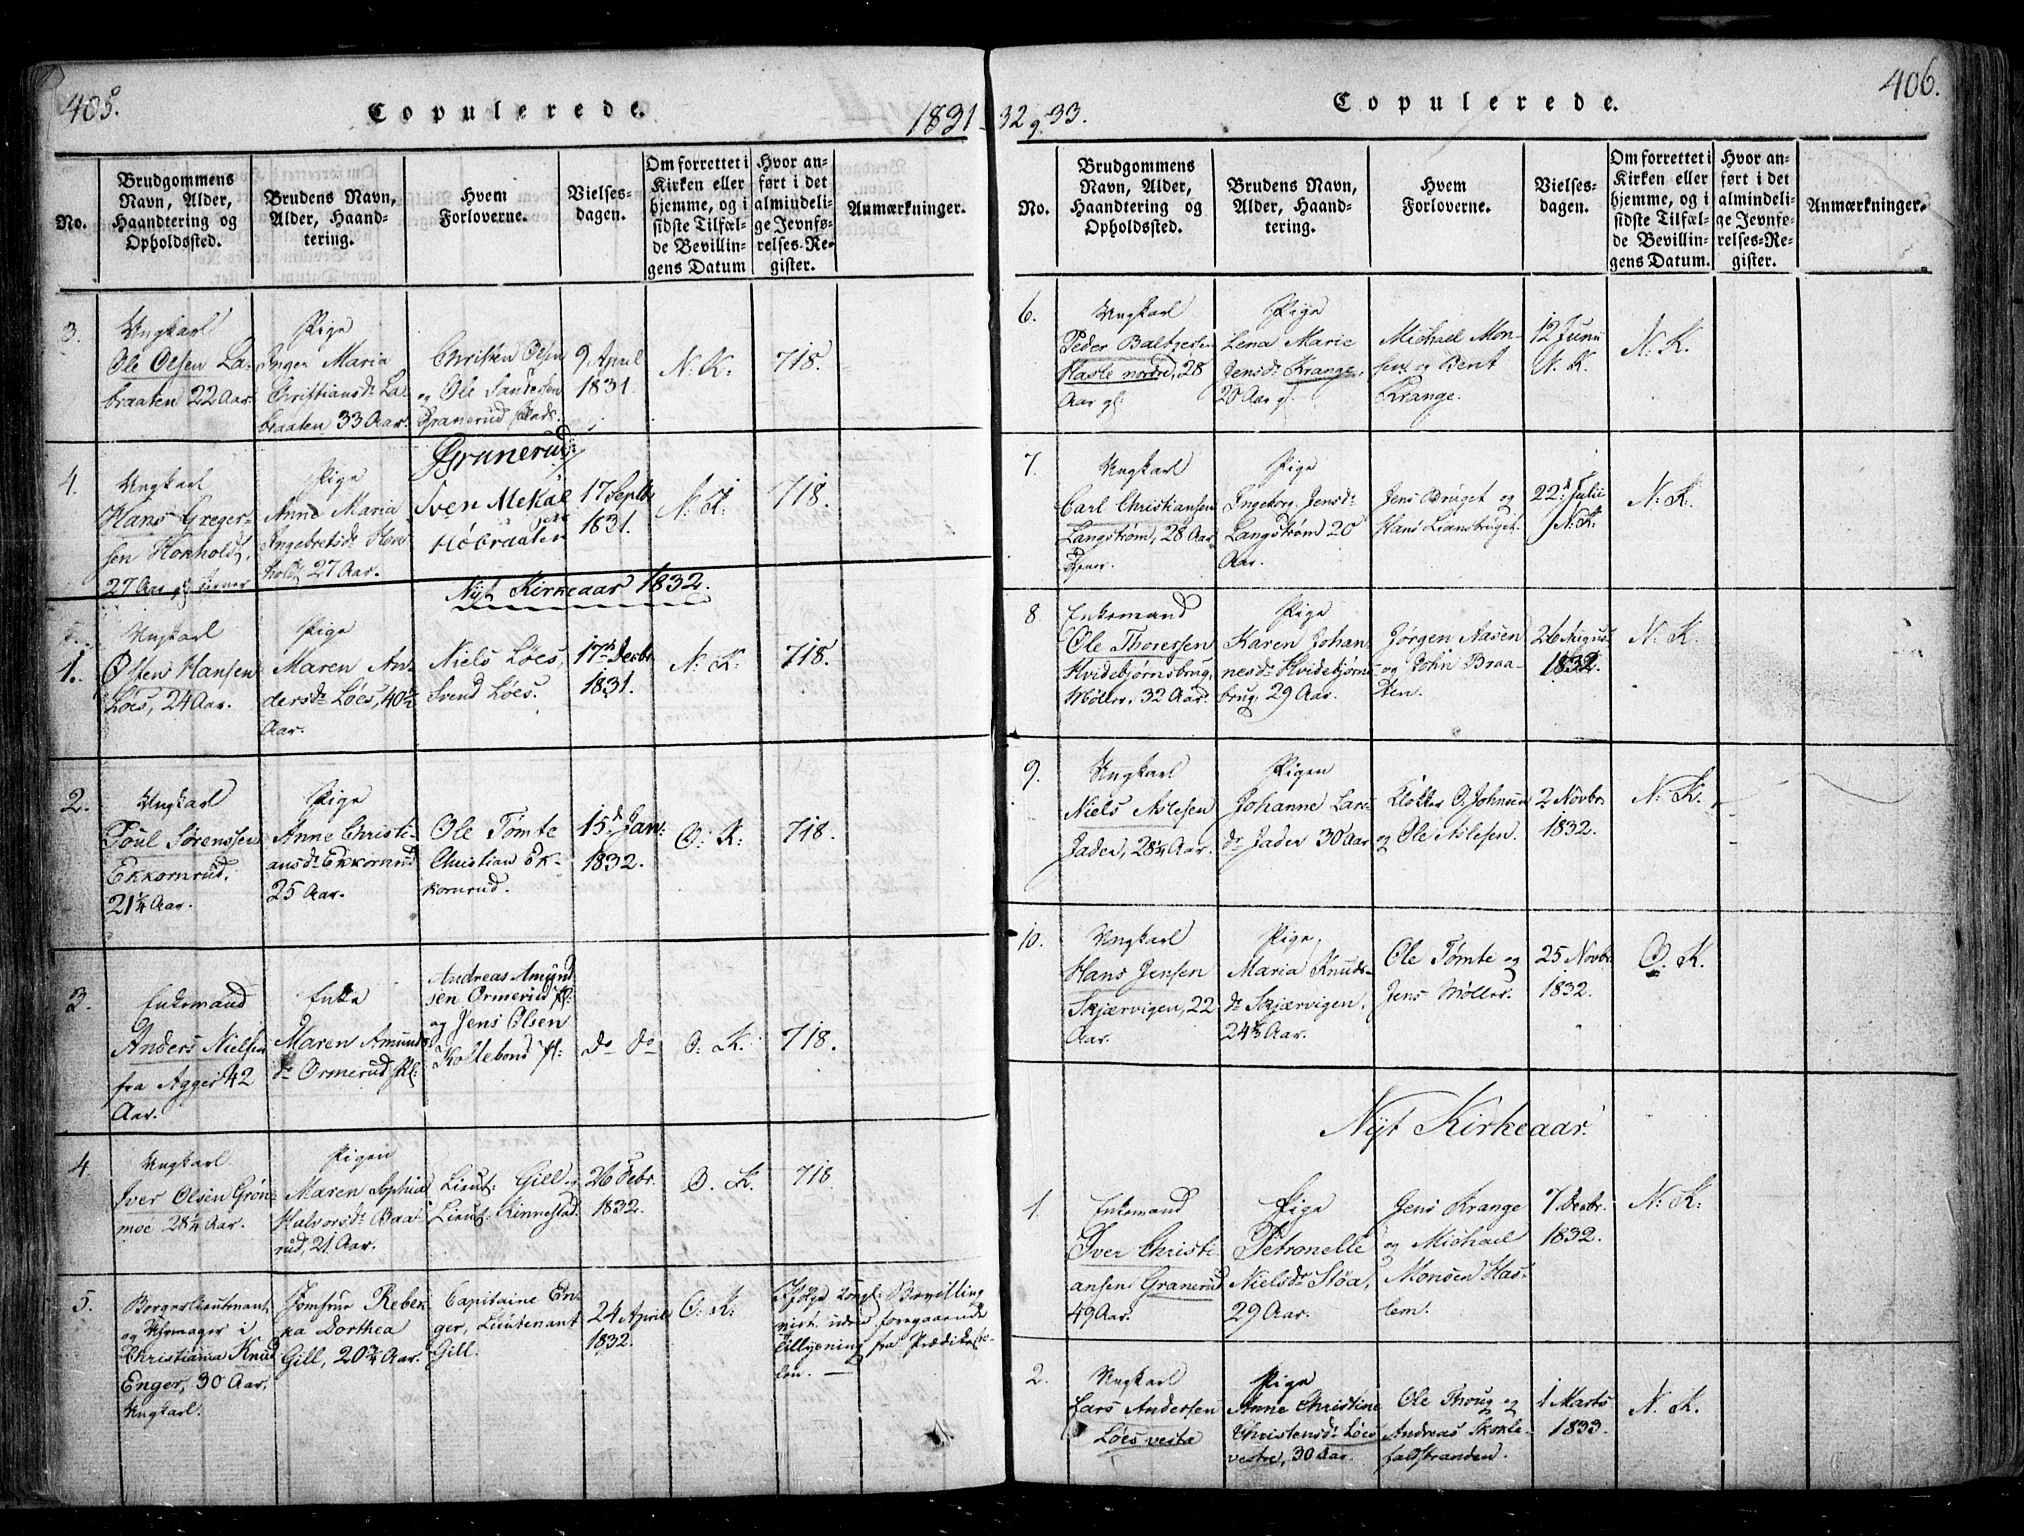 405.
Copulerede.
1831-
No.
Brudgommens
Navn, Alder,
Haandtering og
Opholdssted.
Brudens Navn,
Alder, Haand-
tering.
Hvem
Forloverne.
Vielses-
dagen.
Om forrettet i
Kirken eller
hjemme, og i
sidste Tilfæl-
de Bevillin-
gens Datum
Hvor an-
ført i det
almindeli-
ge Jevnfø-
relses-Re-
gister.
Anmærkninger.
3.
Ungkarl
Ole Olsen La-
braaten 22 Aar.
Pige
Ingen Maria
Christiansdr La-
braaten 33 Aar.
Christen Olsen
og Ole Sandersen
Granerud
9 April
1831.
N. K:
718.
4.
Ungkarl
Hans Greger-
sen Honhold,
27 Aar
Pige
Anne Maria
Ingebretsdr Hon-
hold 27 Aar.
Granerud
Iven Mekal
Høbraaten
17 Septbr
1831.
N. K.
718.
Nyt Kirkeaar 1832.
1.
Ungkarl
Østen Hansen
Løes, 24 Aar.
Pige
Maren An-
dersdr Løes, 40½
Aar.
Niels Løes,
Svend Løes.
17de Decbr
1831.
N. K:
718.
2.
Ungkarl
Poul Sørenssen
Ekkornrud,
21¼ Aar.
Pige
Anne Christi-
ansdr Ekkornrud
25 Aar.
Ole Tømte
Christian Ek-
kornrud.
15d Jan:
1832.
O: K:
718.
3.
Enkemand
Anders Nielsen
fra Agger 42
Aar.
Enke
Maren Amunds
dr Ormerud
Andreas Amund
sen Ormerud
og Jens Olsen
Koltebond
do do
O: K.
718.
4.
Ungkarl
Iver Olsen Grøn-
moe 28¼ Aar.
Pigen
Maren Sophia
Halvorsdr Baa-
rud, 21 Aar.
Lieut: Gill og
Lieut. Kinnestad.
26 Febr.
1832.
O. K.
718.
5.
Borgerlieutnant
og Uhrmager i
Christiania Knud
Enger, 30 Aar,
Ungkarl.
Jomfrue Rebek-
ka Dorthea
Gill, 20¾ Aar.
Capitaine En-
ger, Lieutenant
Gill.
24 April
1832.
O: K:
Ifølge kongl: Bevilling
viet uden foregaaende
Tillysning fra Prædikesto-
len. —
406.
Copulerede.
32 og 33.
No.
Brudgommens
Navn, Alder,
Haandtering og
Opholdssted.
Brudens Navn,
Alder, Haand-
tering.
Hvem
Forloverne.
Vielses-
dagen.
Om forrettet i
Kirken eller
hjemme, og i
sidste Tilfæl-
de Bevillin-
gens Datum.
Hvor an-
ført i det
almindeli-
ge Jevnfø-
relses-Re-
gister.
Anmærkninger.
6.
Ungkarl
Peder Baltzersen
Hasle nordre, 28
Aar gl.
Pige
Lena Marie
Jensdr Krange,
20 Aar gl.
Michael Mon-
sen og Bent
Krange.
12 Junii
N. K.
N. K.
7.
Ungkarl
Carl Christiansen
Langstrøm, 28 Aar
Pige
Ingeborg Jensdr
Langstrøm 20
Aar.
Jens Bruget og
Hans Liansbruget.
22d Julii
N: K:
N: K.
8
Enkemand
Ole Thoresen
Hvidebjørnsbrug,
Møller, 32 Aar.
Pige
Karen Johan
nesdr Hvidebjørns-
brug, 29 Aar.
Jørgen Aasen
og John Braa-
ten.
26 August
1832.
N: K.
9.
Ungkarl
Niels Aslesen
Jader, 28¼ Aar.
Pigen
Johanne Lars
dr Jader 30 Aar
Klokker O. Johnsen
og Ole Aslesen.
2 Novbr.
1832.
N: K.
10.
Ungkarl
Hans Jensen
Skjærvigen, 22
Aar.
Pige
Maria Knuds-
dr Skjærvigen,
24¾ Aar.
Ole Tømte og
Jens Møller.
25 Novbr.
1832.
O. K.
Nyt Kirkeaar.
1.
Enkemand
Iver Christi-
ansen Granerud
49 Aar.
Pige
Petronelle
Nielsdr Støa,
29 Aar.
Jens Krange
og Michael
Monsen Has-
lem.
7 Decbr.
1832.
N: K:
2.
Ungkarl
Lars Andersen
Løes vestre
Pige
Anne Christine
Christensdr Løes
vestre, 30 Aar.
Ole Throug og
Andreas Skokle-
faldstranden.
1 Marts
1833.
N. K.